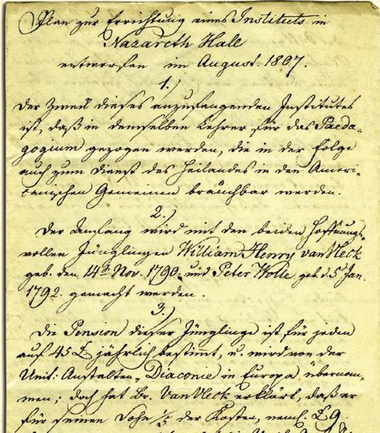 Plan zur Errichtung eines Instituts in
Nazareth Hall
entworfen im August. 1807.
1.)
Der Zweck dieses anzufangenden Institutes
ist, daß in demselben Lehrer für das Paeda-
gogium gezogen werden, die in der Folge
auch zum Dienst des Heilandes in den Ameri-
canischen Gemeinen brauchbar werden.
2.)
Der Anfang wird mit den beiden hoffnungs-
vollen Jünglingen William Henry van Vleck
geb. den 14t Nov. 1790. und Peter Wolle geb. d 5 Jan.
1792. gemacht werden.
3.)
Die Pension dieser Jünglinge ist für jeden
auf 45 £ jährlich bestimt, u. wird von der
Unit: Anstalten-Diaconie in Europa übernom-
men; doch hat Br. Van Vleck erklärt, daß er
für seinen Sohn 1/5 der Kosten, neml. £ 9.